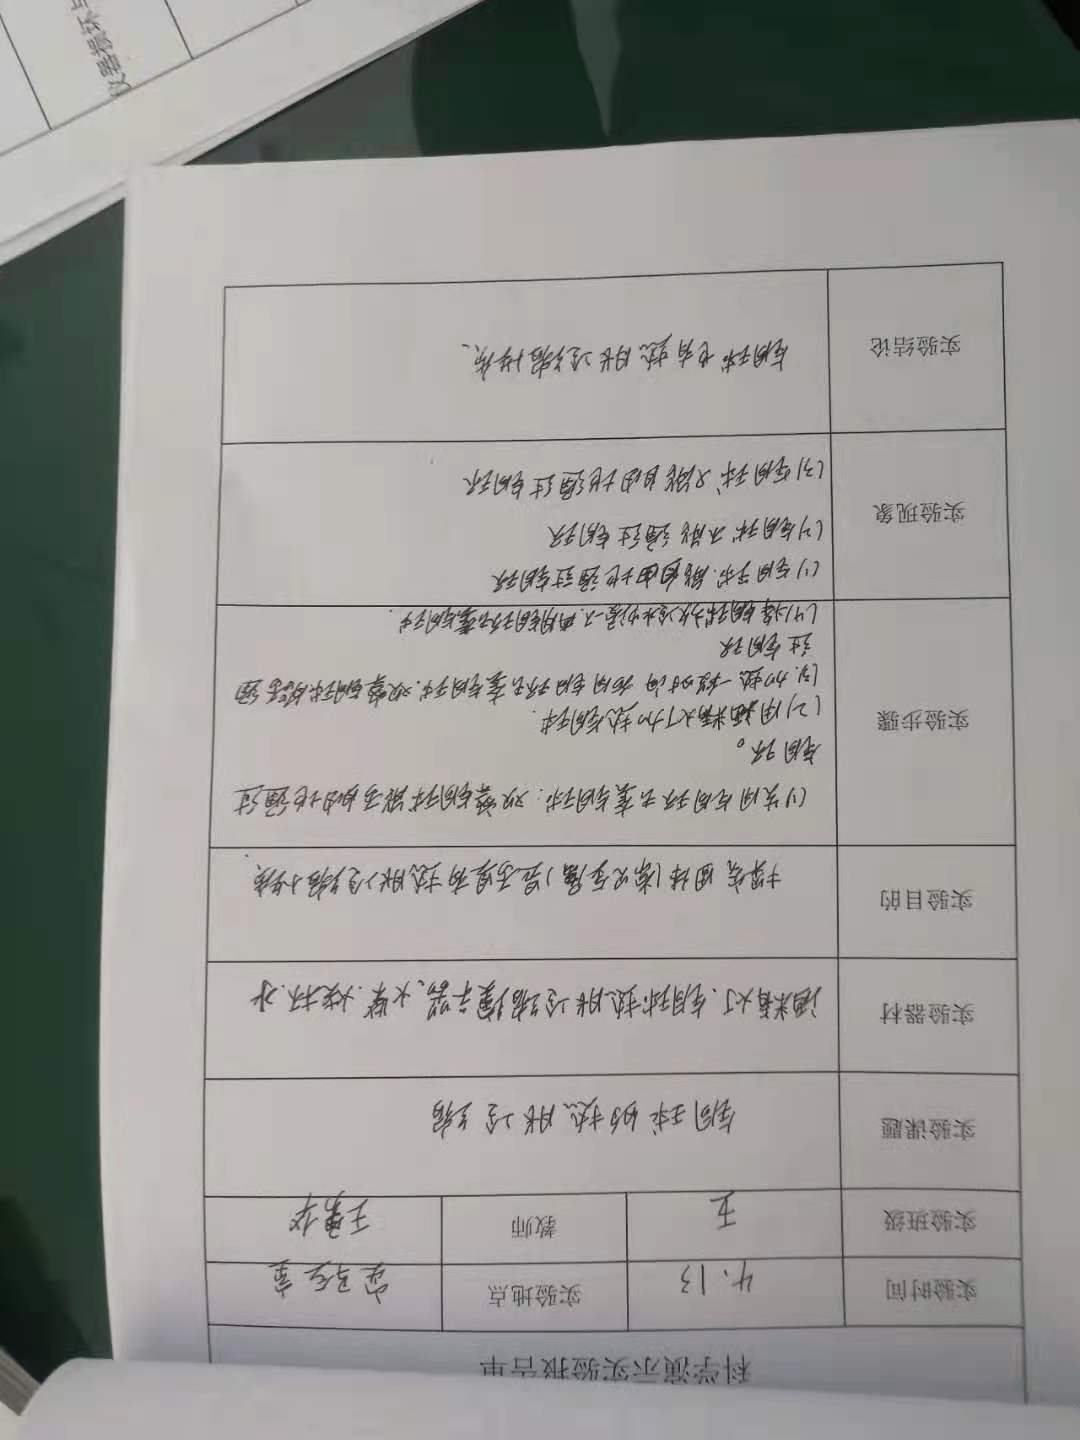 仪器损坏
科学演示实验报告单
实验时间 4.13 实验地点 实验室
实验班级 五 教师 王勇华
实验课题 铜球的热胀冷缩
实验器材 酒精灯、铜球热胀冷缩演示器、火柴、烧杯、水
实验目的 探究固体(常见金属)是否具有热胀冷缩性质
实验步骤 (1)先用铜环去套铜球:观察铜球能否自由地通过
铜环。
(2)用酒精灯加热铜球.
(3).加热一段时间 后用铜环去套铜球.观察铜球能否通
过铜环
(4)将铜球放入冷水中浸一下.再用铜环去套铜球.
实验现象 (1)铜球.能自由地通过铜环
(2)铜球不能通过铜环
(3)铜球又能自由地通过铜环
实验结论 铜球也有热胀冷缩性质、